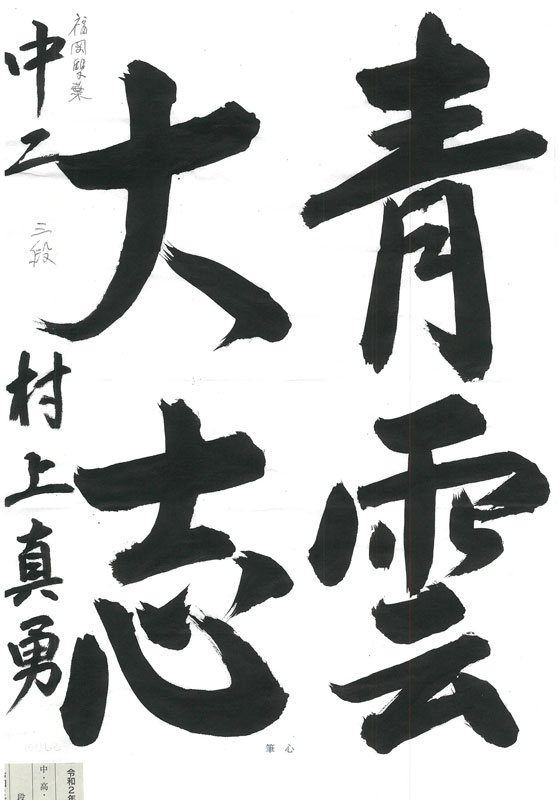 青雲
大志
中二 三段 村上真勇
福岡
心筆
令和2年
中・高・
段